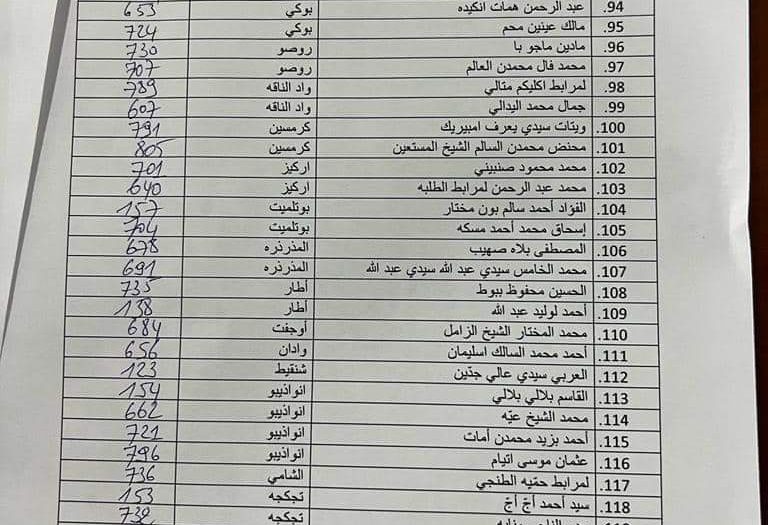 .94 عبد الرحمن همات انكيده بوكي 653
.95 مالك عينين محم بوكي 724
.96 مادين ماجو با روصو 730
.97 محمد فال محمدن العالم روصو 707
.98 لمرابط اكليكم متالي واد الناقه 789
.99 جمال محمد اليدالي واد الناقه 607
.100 ويتات سيدي يعرف امبيريك كرمسين 791
.101 محنض محمدن السالم الشيخ المستعين كرمسين 805
.102 محمد محمود صنبيني اركيز 701
.103 محمد عبد الرحمن لمرابط الطلبه اركيز 640
.104 الفؤاد أحمد سالم بون مختار بوتلميت 157
.105 إسحاق محمد أحمد مسكه بوتلميت 704
.106 المصطفى بلاه صهيب المذرذره 678
.107 محمد الخامس سيدي عبد الله سيدي عبد الله المذرذره 691
.108 الحسين محفوظ ببوط أطار 735
.109 أحمد لوليد عبد الله أطار 138
.110 محمد المختار الشيخ الزامل أوجفت 684
.111 أحمد محمد السالك اسليمان وادان 656
.112 العربي سيدي عالي جدّين شنقيط 123
.113 القاسم بلالي بلالي انواذيبو 154
.114 محمد الشيخ عيّه انواذيبو 662
.115 أحمد بزيد محمدن أمات انواذيبو 721
.116 عثمان موسى اتيام انواذيبو 796
.117 لمرابط حمّيه الطنجي الشامي 736
.118 سيد أحمد أجّ أجّ تجكجه 153
تجكجه